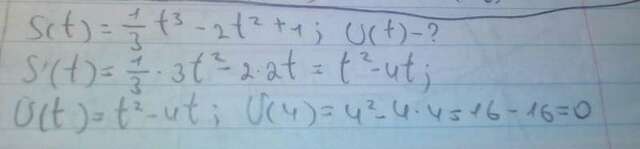 S(t) = 1/3 t³ - 2t² + 1; υ(t) - ?
S'(t) = 1/3 · 3t² - 2·2t = t² - 4t;
υ(t) = t² - 4t; υ(4) = 4² - 4·4 = 16 - 16 = 0